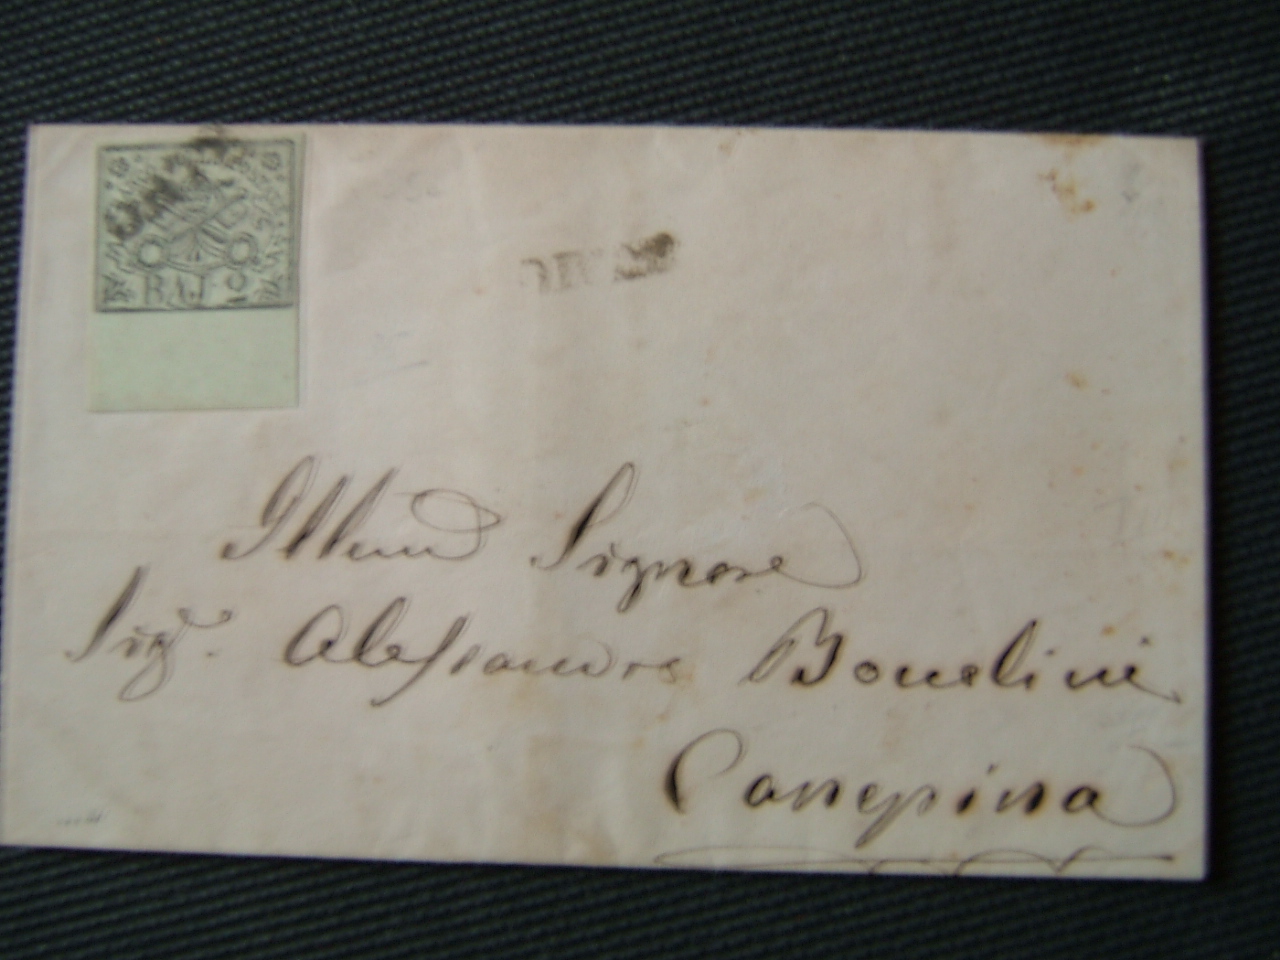 BAJ 2
Illmo Signore
Sigr. Alessandro Bonelini
Canepina